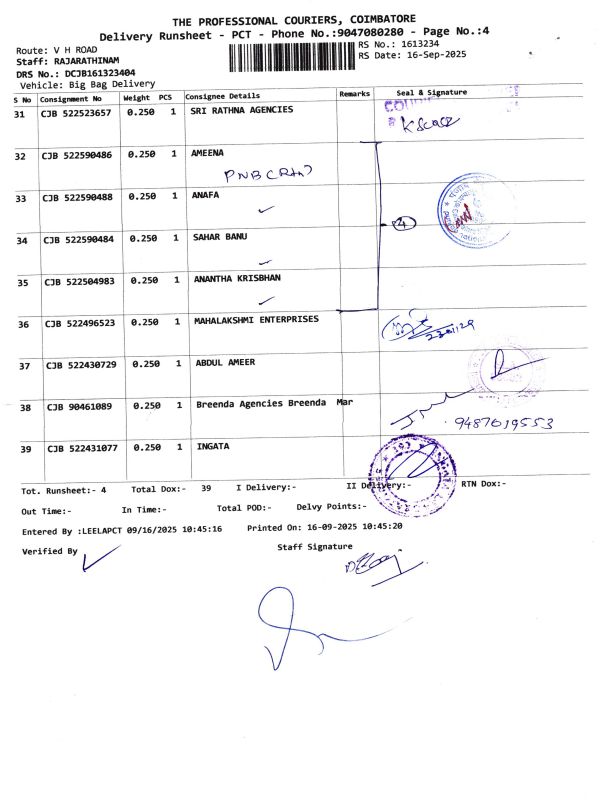 THE PROFESSIONAL COURIERS, COIMBATORE
Delivery Runsheet - PCT - Phone No.:9047080280 - Page No.:4
Route: V H ROAD
RS No.: 1613234
Staff: RAJARATHINAM
RS Date: 16-Sep-2025
DRS No.: DCJB161323404
Vehicle: Big Bag Delivery
S No Consignment No Weight PCS Consignee Details Remarks Seal & Signature
31 CJB 522523657 0.250 1 SRI RATHNA AGENCIES
32 CJB 522590486 0.250 1 AMEENA
33 CJB 522590488 0.250 1 ANAFA
4
34 CJB 522590484 0.250 1 SAHAR BANU
35 CJB 522504983 0.250 1 ANANTHA KRISBHAN
36 CJB 522496523 0.250 1 MAHALAKSHMI ENTERPRISES
37 CJB 522430729 0.250 1 ABDUL AMEER
38 CJB 90461089 0.250 1 Breenda Agencies Breenda Mar
9487619553
39 CJB 522431077 0.250 1 INGATA
Tot. Runsheet:- 4 Total Dox:- 39 I Delivery:- II Delivery:- RTN Dox:-
Out Time:- In Time:- Total POD:- Delvy Points:-
Entered By :LEELAPCT 09/16/2025 10:45:16 Printed On: 16-09-2025 10:45:20
Verified By Staff Signature